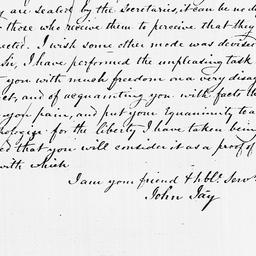 are sealed by the Secretaries, it can be no di
those who receive them to perceive that they
ected. I wish some other mode was devised
Sir, I have performed the unpleasing task
you with much freedom on a very disag
ect, and of acquainting you with facts th
you pain, and put your Equanimity to a
pologize for the liberty I have taken, being
ed that you will consider it as a proof of
with which
I am your friend & hble. Servt.
John Jay